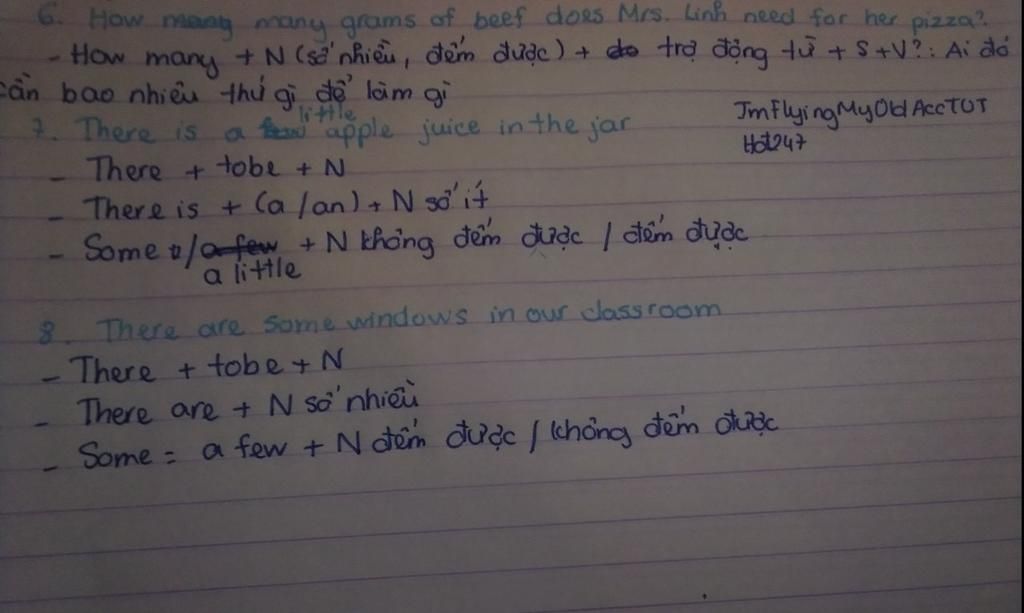 6. How many many grams of beef does Mrs. Linh need for her pizza?
- How many + N (số nhiều, đếm được) + do trợ động từ + S + V?: Ai đó
cần bao nhiêu thứ gì để làm gì
7. There is a few little apple juice in the jar
ImFlyingMyOldAccTUT
Hot247
- There + tobe + N
- There is + (a/an) + N số ít
- Some / a few + N không đếm được / đếm được
a little
8. There are some windows in our classroom
- There + tobe + N
- There are + N số nhiều
- Some = a few + N đếm được / không đếm được